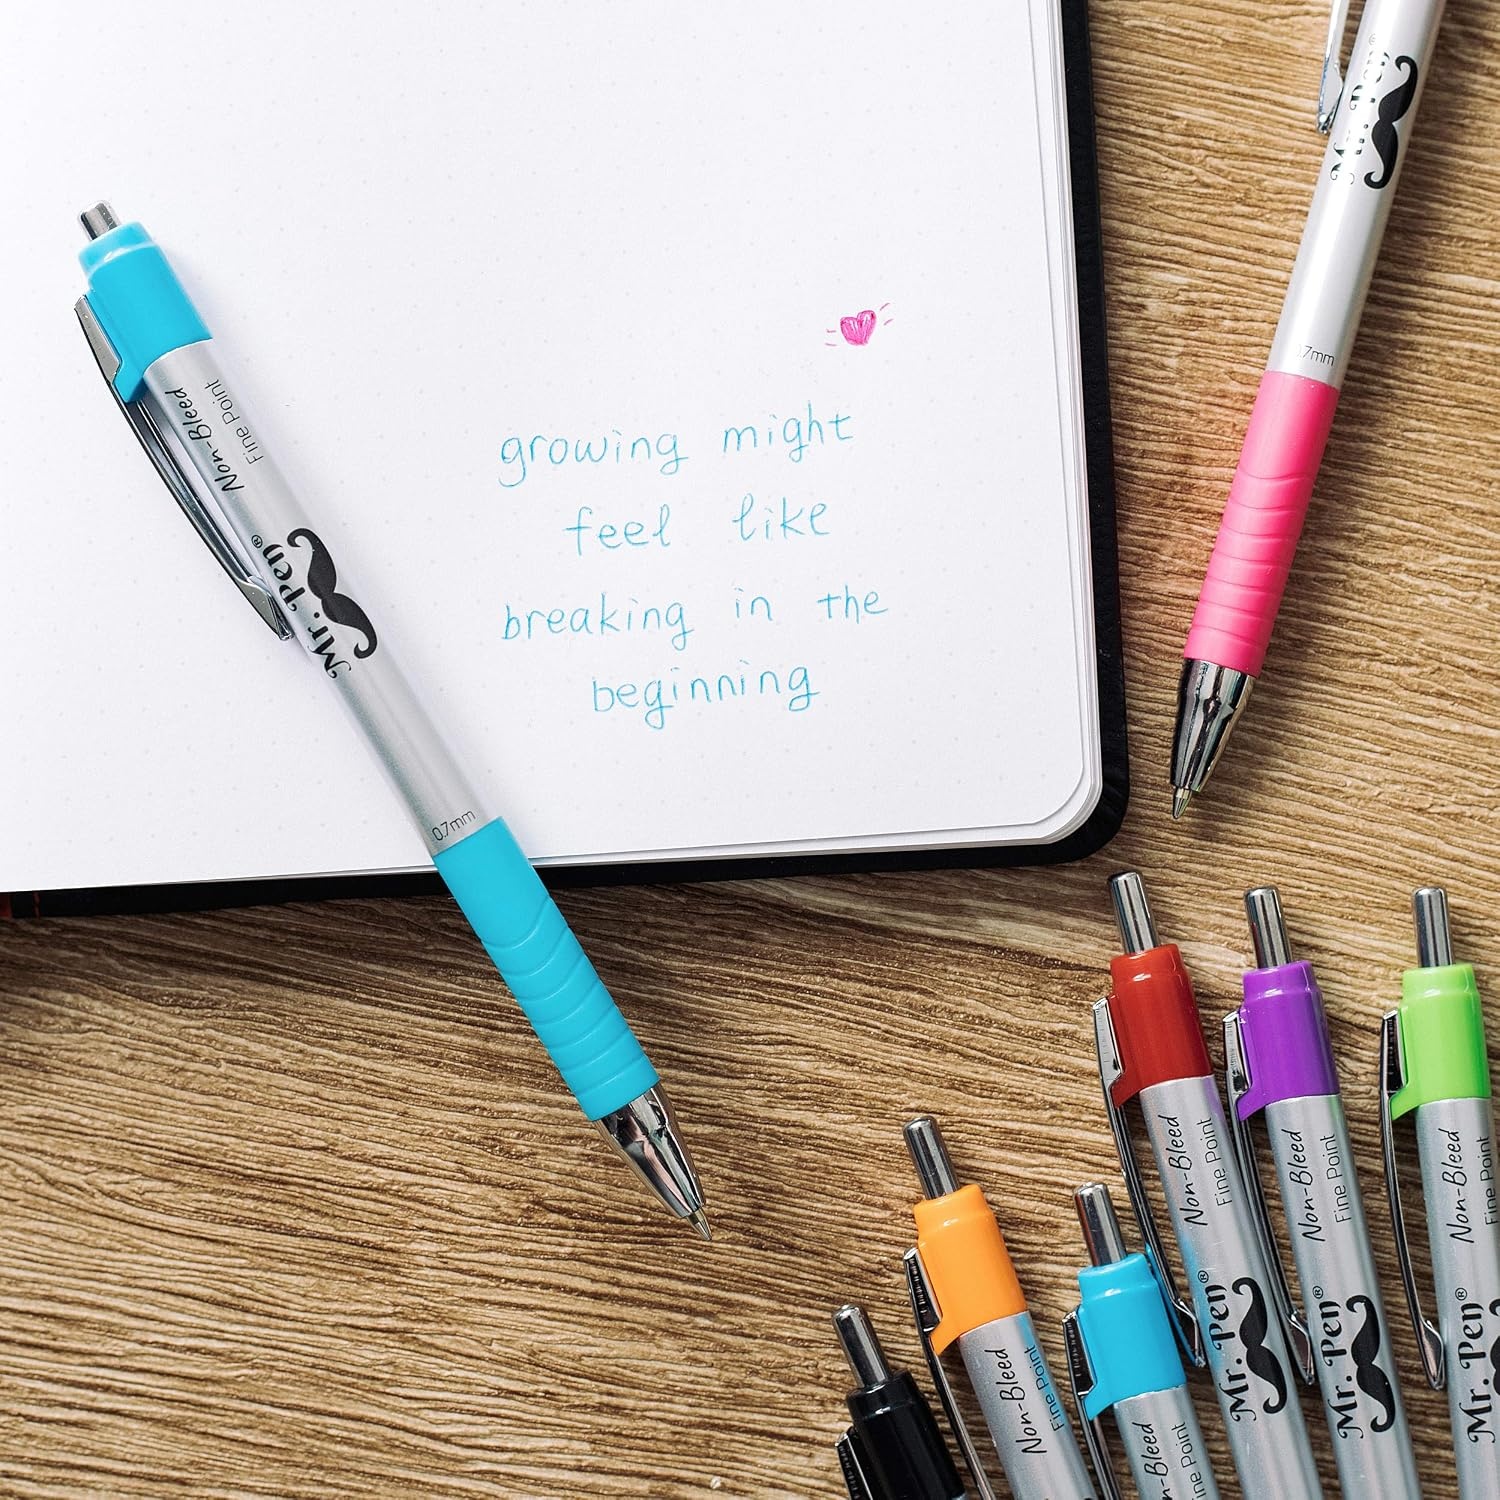 growing might
feel like
breaking in the
beginning
Non-Bleed
Fine Point
Mr. Pen®
0.7mm
Mr. Pen®
.7mm
Non-Bleed
Fine Point
Mr. Pen®
Non-Bleed
Fine Point
Mr. Pen®
Non-Bleed
Fine Point
Mr. Pen®
Non-Bleed
Fine Point
-Bleed
Fine Point